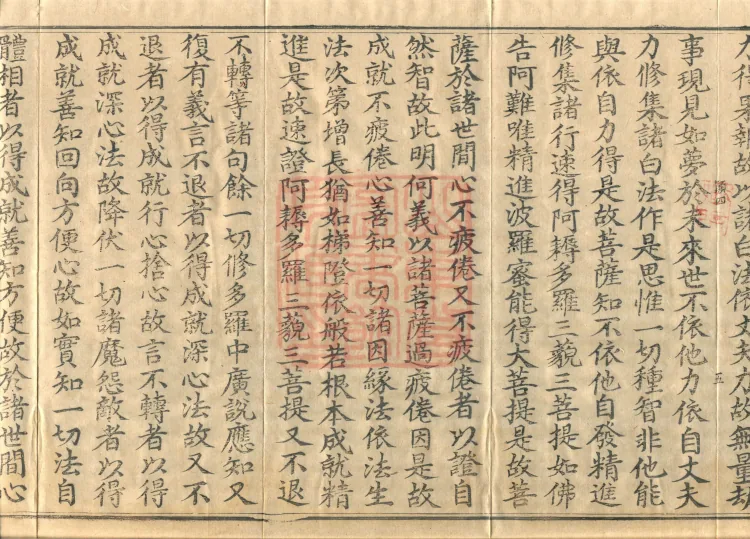 力得果報故以諸白法依丈夫力故無量劫
五
事現見如夢於未來世不依他力依自丈夫
力修集諸白法作是思惟一切種智非他能
與依自力得是故菩薩知不依他自發精進
修集諸行速得阿耨多羅三藐三菩提如佛
告阿難唯精進波羅蜜能得大菩提是故菩
薩於諸世間心不疲倦又不疲倦者以證自
然智故此明何義以諸菩薩過疲倦因是故
成就不疲倦心善知一切諸因緣法依法生
法次第增長猶如梯隥依般若根本成就精
進是故速證阿耨多羅三藐三菩提又不退
不轉等諸句餘一切修多羅中廣說應知又
復有義言不退者以得成就深心法故又不
退者以得成就行心捨心故言不轉者以得
成就深心法故降伏一切諸魔怨敵者以得
成就善知回向方便心故如實知一切法自
體相者以得成就善知方便故於諸世間心